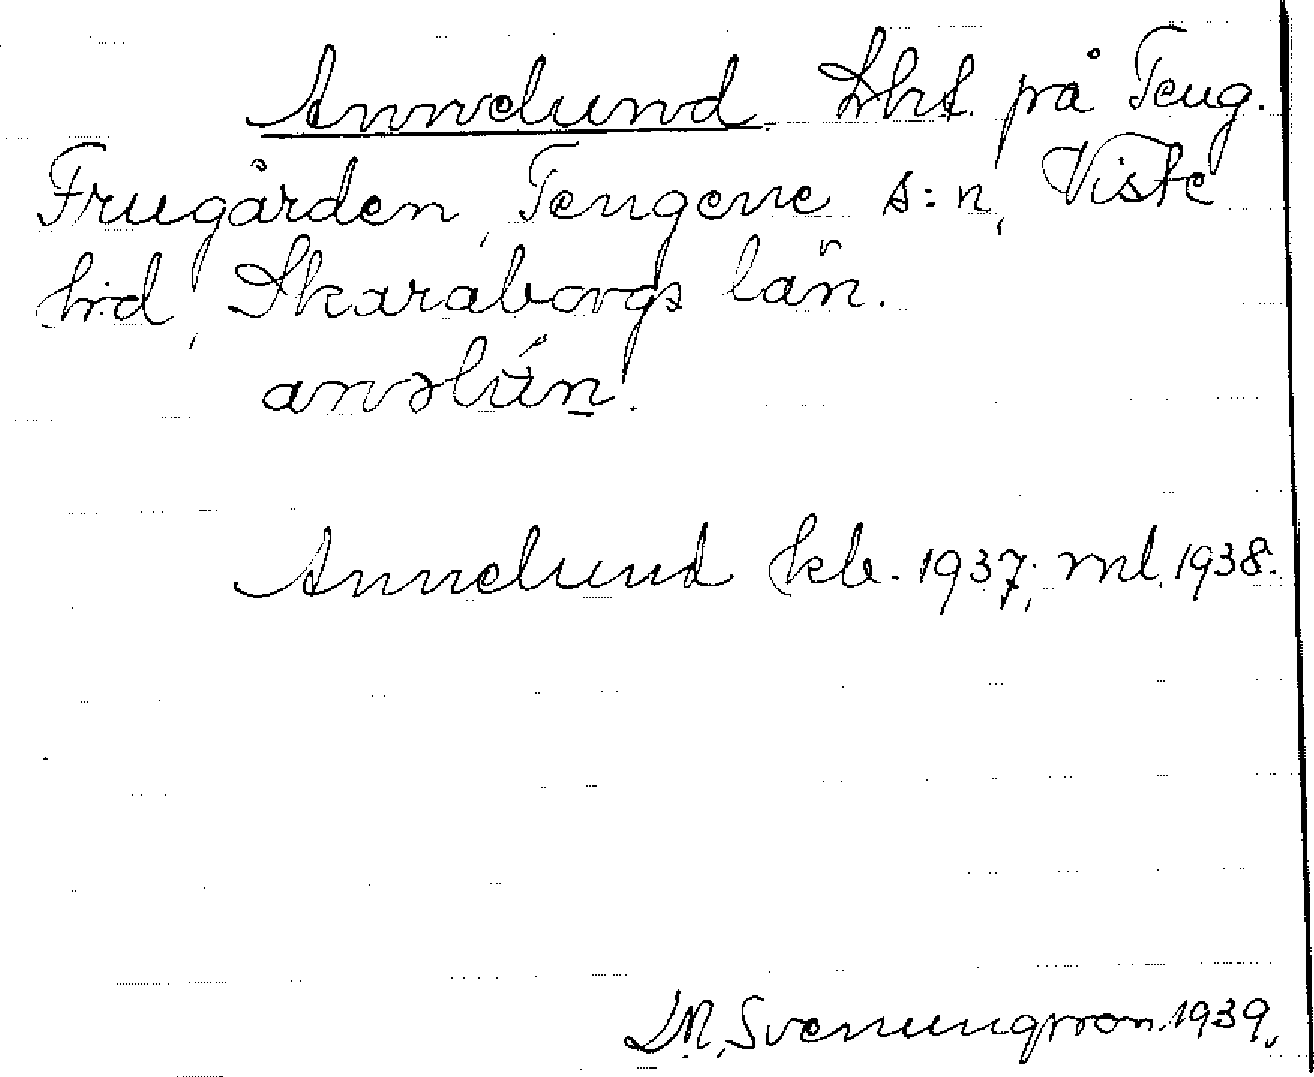 Annelund Lht. på Teng.
Frugården, Tengene s:n, Viste
h:d, Skaraborgs län.
anəlún.
Annelund kb. 1937; ml. 1938.
D.N. Svenungsson 1939.